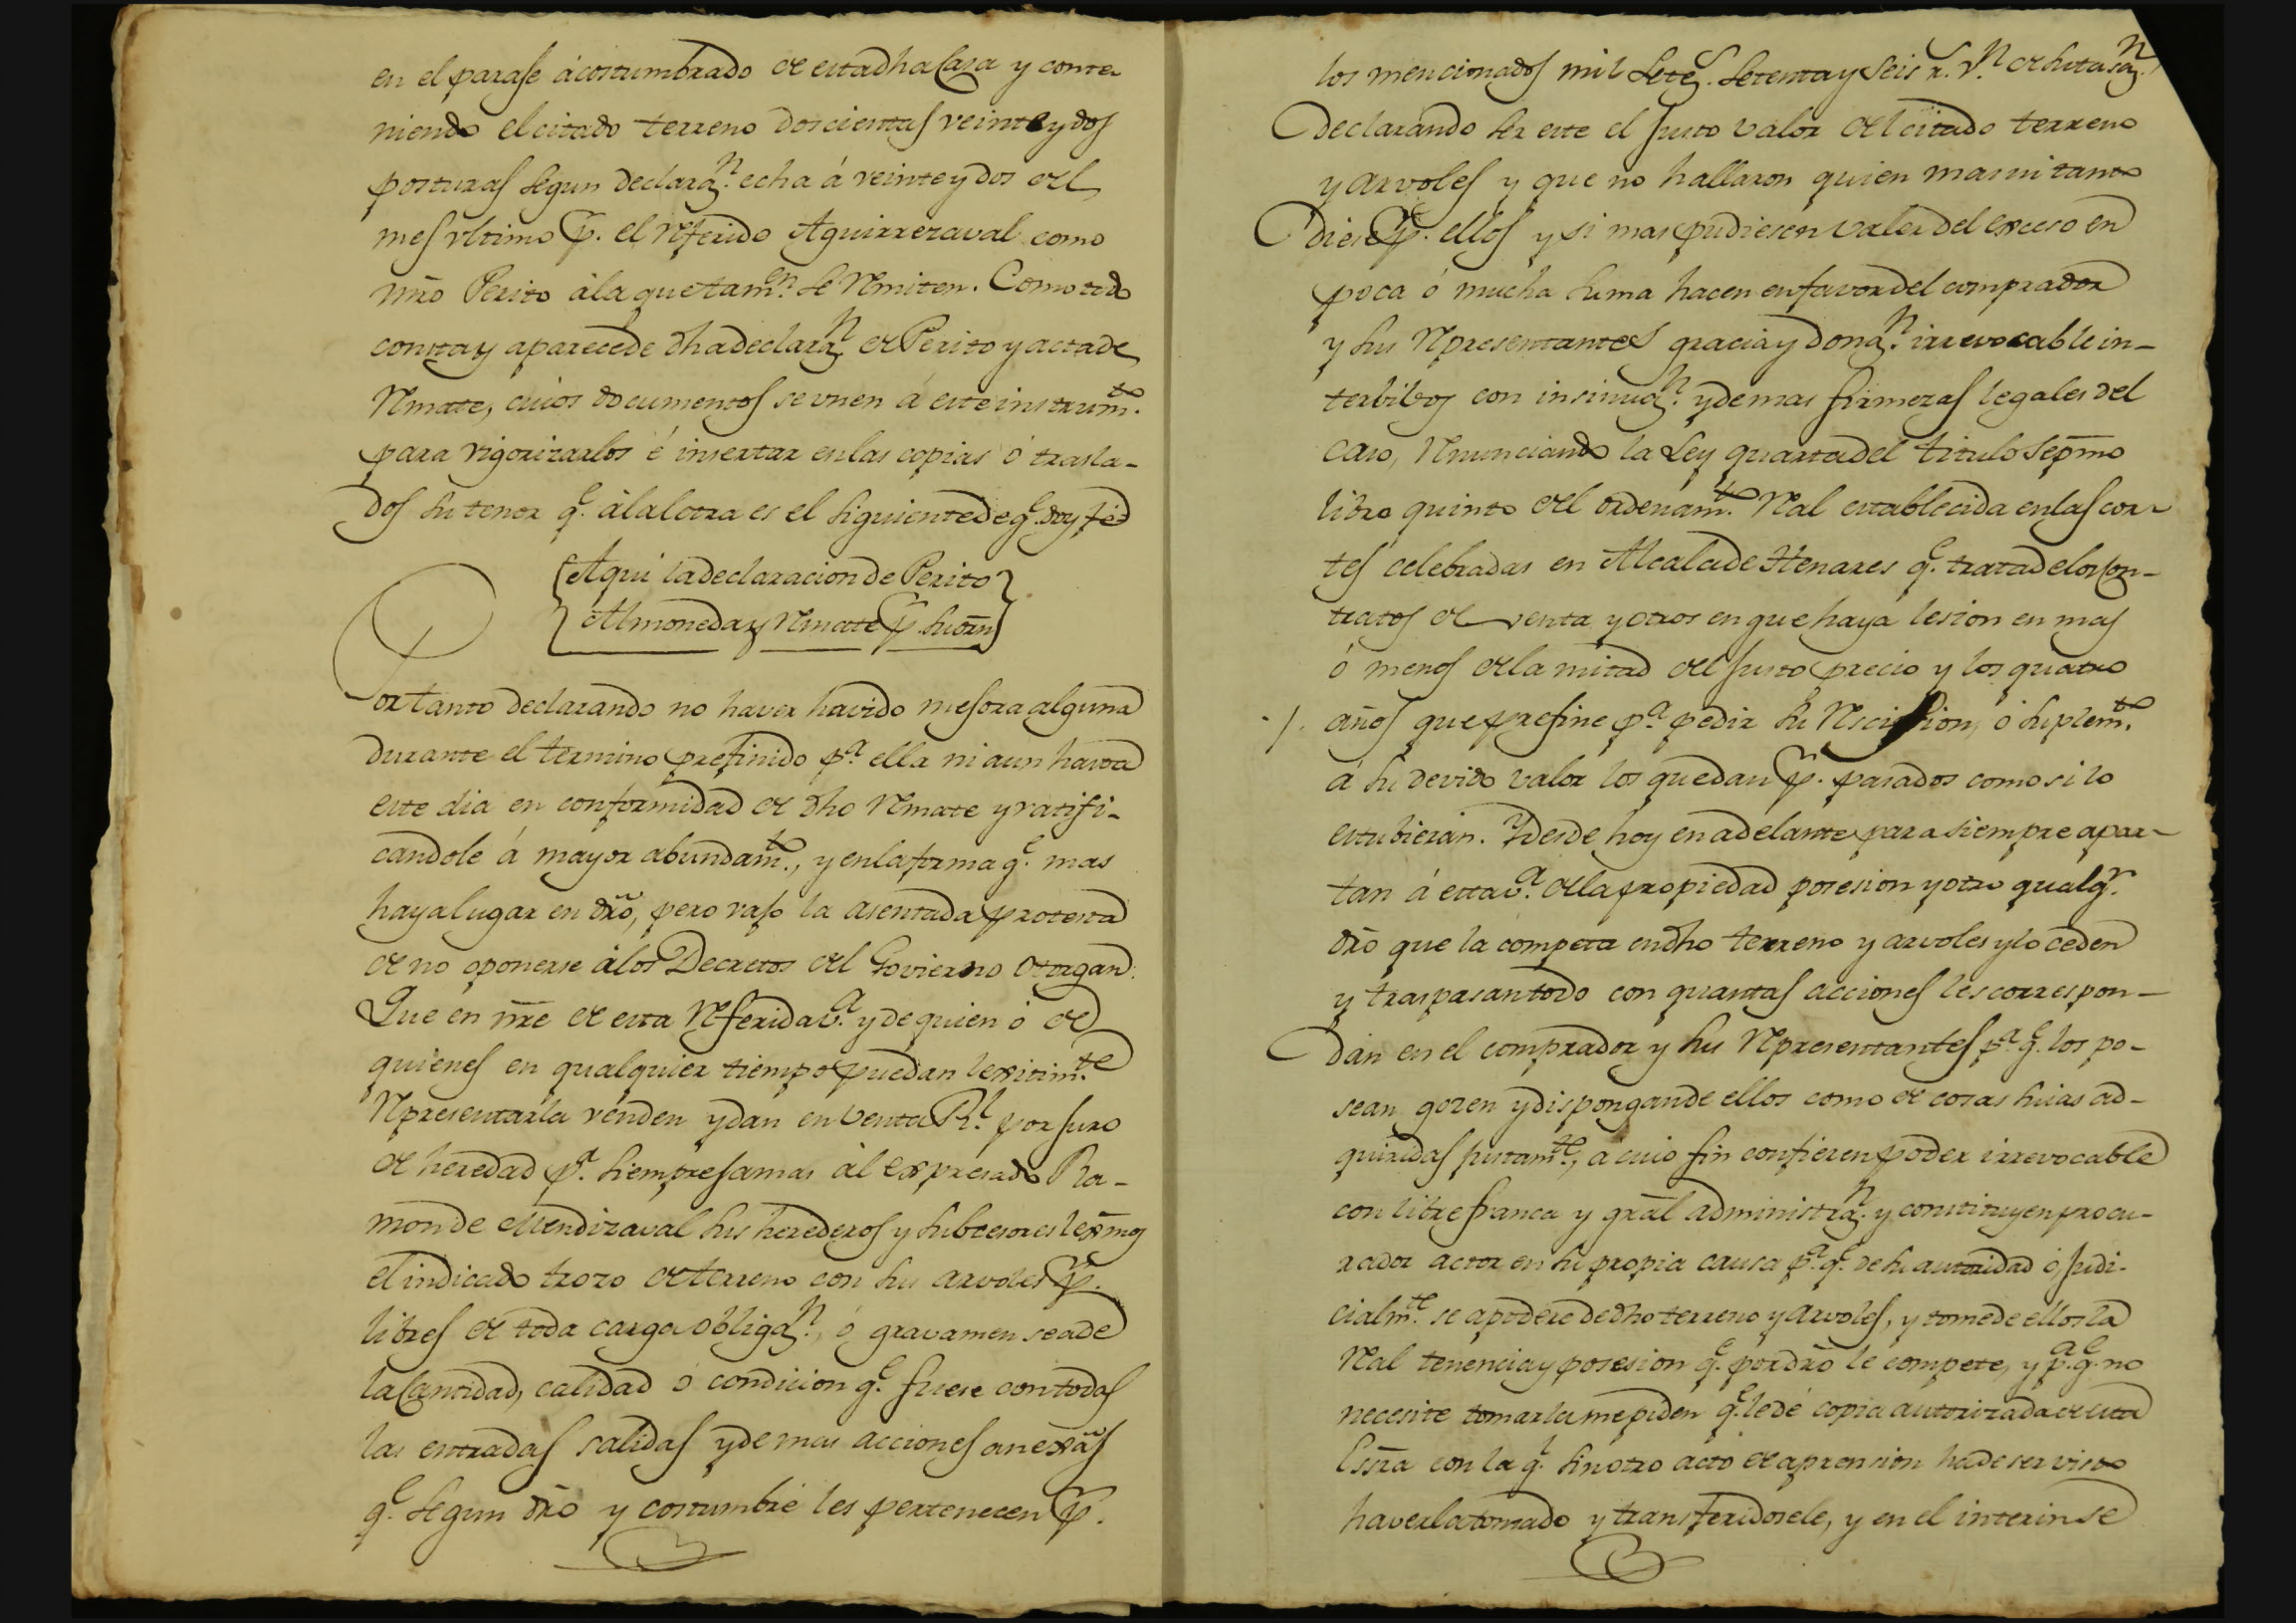 en el paraje ácostumbrado de esta dha Casa y conte-
niendo el citado terreno doscientas veinte y dos
posturas segun declarazn. echa á veinte y dos del
mes vltimo pr. el referido Aguirrezaval como
nro Perito á la que tamen. se remiten. Como todo
consta y aparece de dha declarazn de Perito y acta de
remate, cuios documentos se vnen á este instrumto.
para vigorizarlos é insertar en las copias ó trasla-
dos su tenor qe. á la letra es el siguiente de qe. doy fe
Aqui la declaracion de Perito
Almoneda y remate pr. su orn
Por tanto declarando no haver havido mejora alguna
durante el termino prefinido pa. ella ni aun hasta
este dia en conformidad de dho remate y ratifi-
candole á mayor abundamto., y en la forma qe. mas
haya lugar en dro, pero vajo la asentada protesta
de no oponerse á los Decretos del Govierno otorgan:
Que en nre de esta referida va. y de quien ó de
quienes en qualquier tiempo puedan lexitimte.
representarla venden y dan en venta Rl. por juro
de heredad pa. siempre jamas ál expresado Ra-
mon de Mendizaval sus herederos y subcesores lexmos
el indicado trozo de terreno con sus arvoles pr.
libres de toda carga obligazn., ó gravamen sea de
la Cantidad, calidad ó condicion qe. fuese con todas
las entradas salidas y demas acciones anexas
qe. segun dro y costumbre les pertenecen pr.
los mencionados mil setecs. setenta y seis rs. vn. de su tasazn.
Declarando ser este el justo valor del citado terreno
y arvoles y que no hallaron quien mas ni tanto
diese pr. ellos y si mas pudiesen valer del exceso en
poca ó mucha suma hacen en favor del comprador
y sus representantes gracia y donazn. irrevocable in-
terbibos con insinuazn. y demas firmezas legales del
caso, renunciando la Ley quarta del titulo sepmo
libro quinto del ordenamto. real establecida en las cor-
tes celebradas en Alcala de Henares qe. trata de los Con-
tratos de venta y otros en que haya lesion en mas
ó menos de la mitad del justo precio y los quatro
años que prefine pa. pedir su rescision, ó suplemto.
á su devido valor los que dan pr. pasados como si lo
estubieran. Y desde hoy en adelante para siempre apar-
tan á esta va. de la propiedad posesion y otro qualqr.
dro que la competa en dho terreno y arvoles y lo ceden
y traspasan todo con quantas acciones les correspon-
dan en el comprador y sus representantes pa. qe. los po-
sean gozen y dispongan de ellos como de cosas suias ad-
quiridas justamte., a cuio fin confieren poder irrevocable
con libre franca y gral administrazn. y constituyen procu-
rador actor en su propia causa pa. qe. de su autoridad ó judi-
cialmte. se apodere de dho terreno y arvoles, y tome de ellos la
real tenencia y posesion qe. por dro le compete, y pa. qe. no
necesite tomarla me piden qe. le dé copia autorizada de esta
Essra con la ql. sin otro acto de aprension ha de ser visto
haverla tomado y transferidosele, y en el interin se